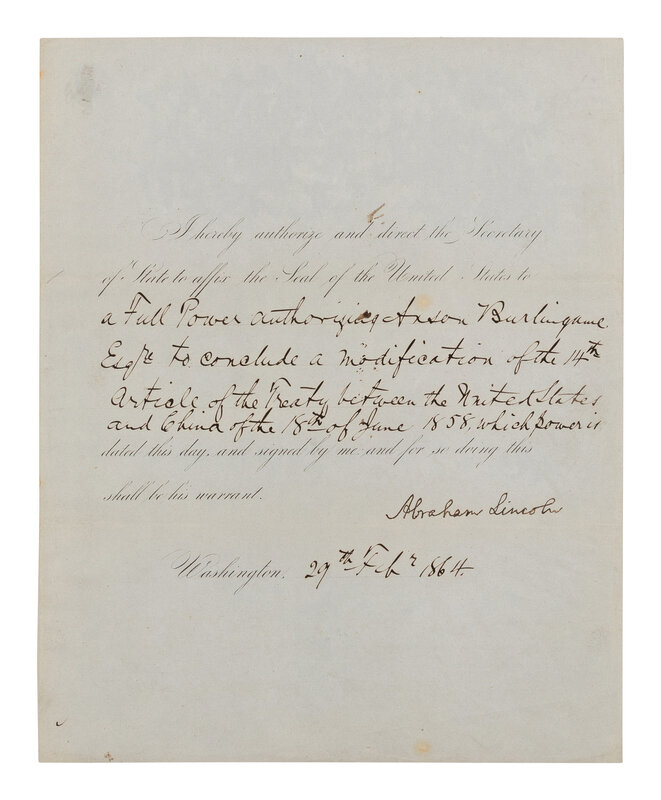 I hereby authorize and direct the Secretary
of State to affix the Seal of the United States to
a Full Power authorizing Anson Burlingame
Esqre to conclude a modification of the 14th
Article of the Treaty between the United States
and China of the 18th of June 1858, which power is
dated this day, and signed by me and for so doing this
shall be his warrant.
Abraham Lincoln
Washington, 29th Feb r 1864.